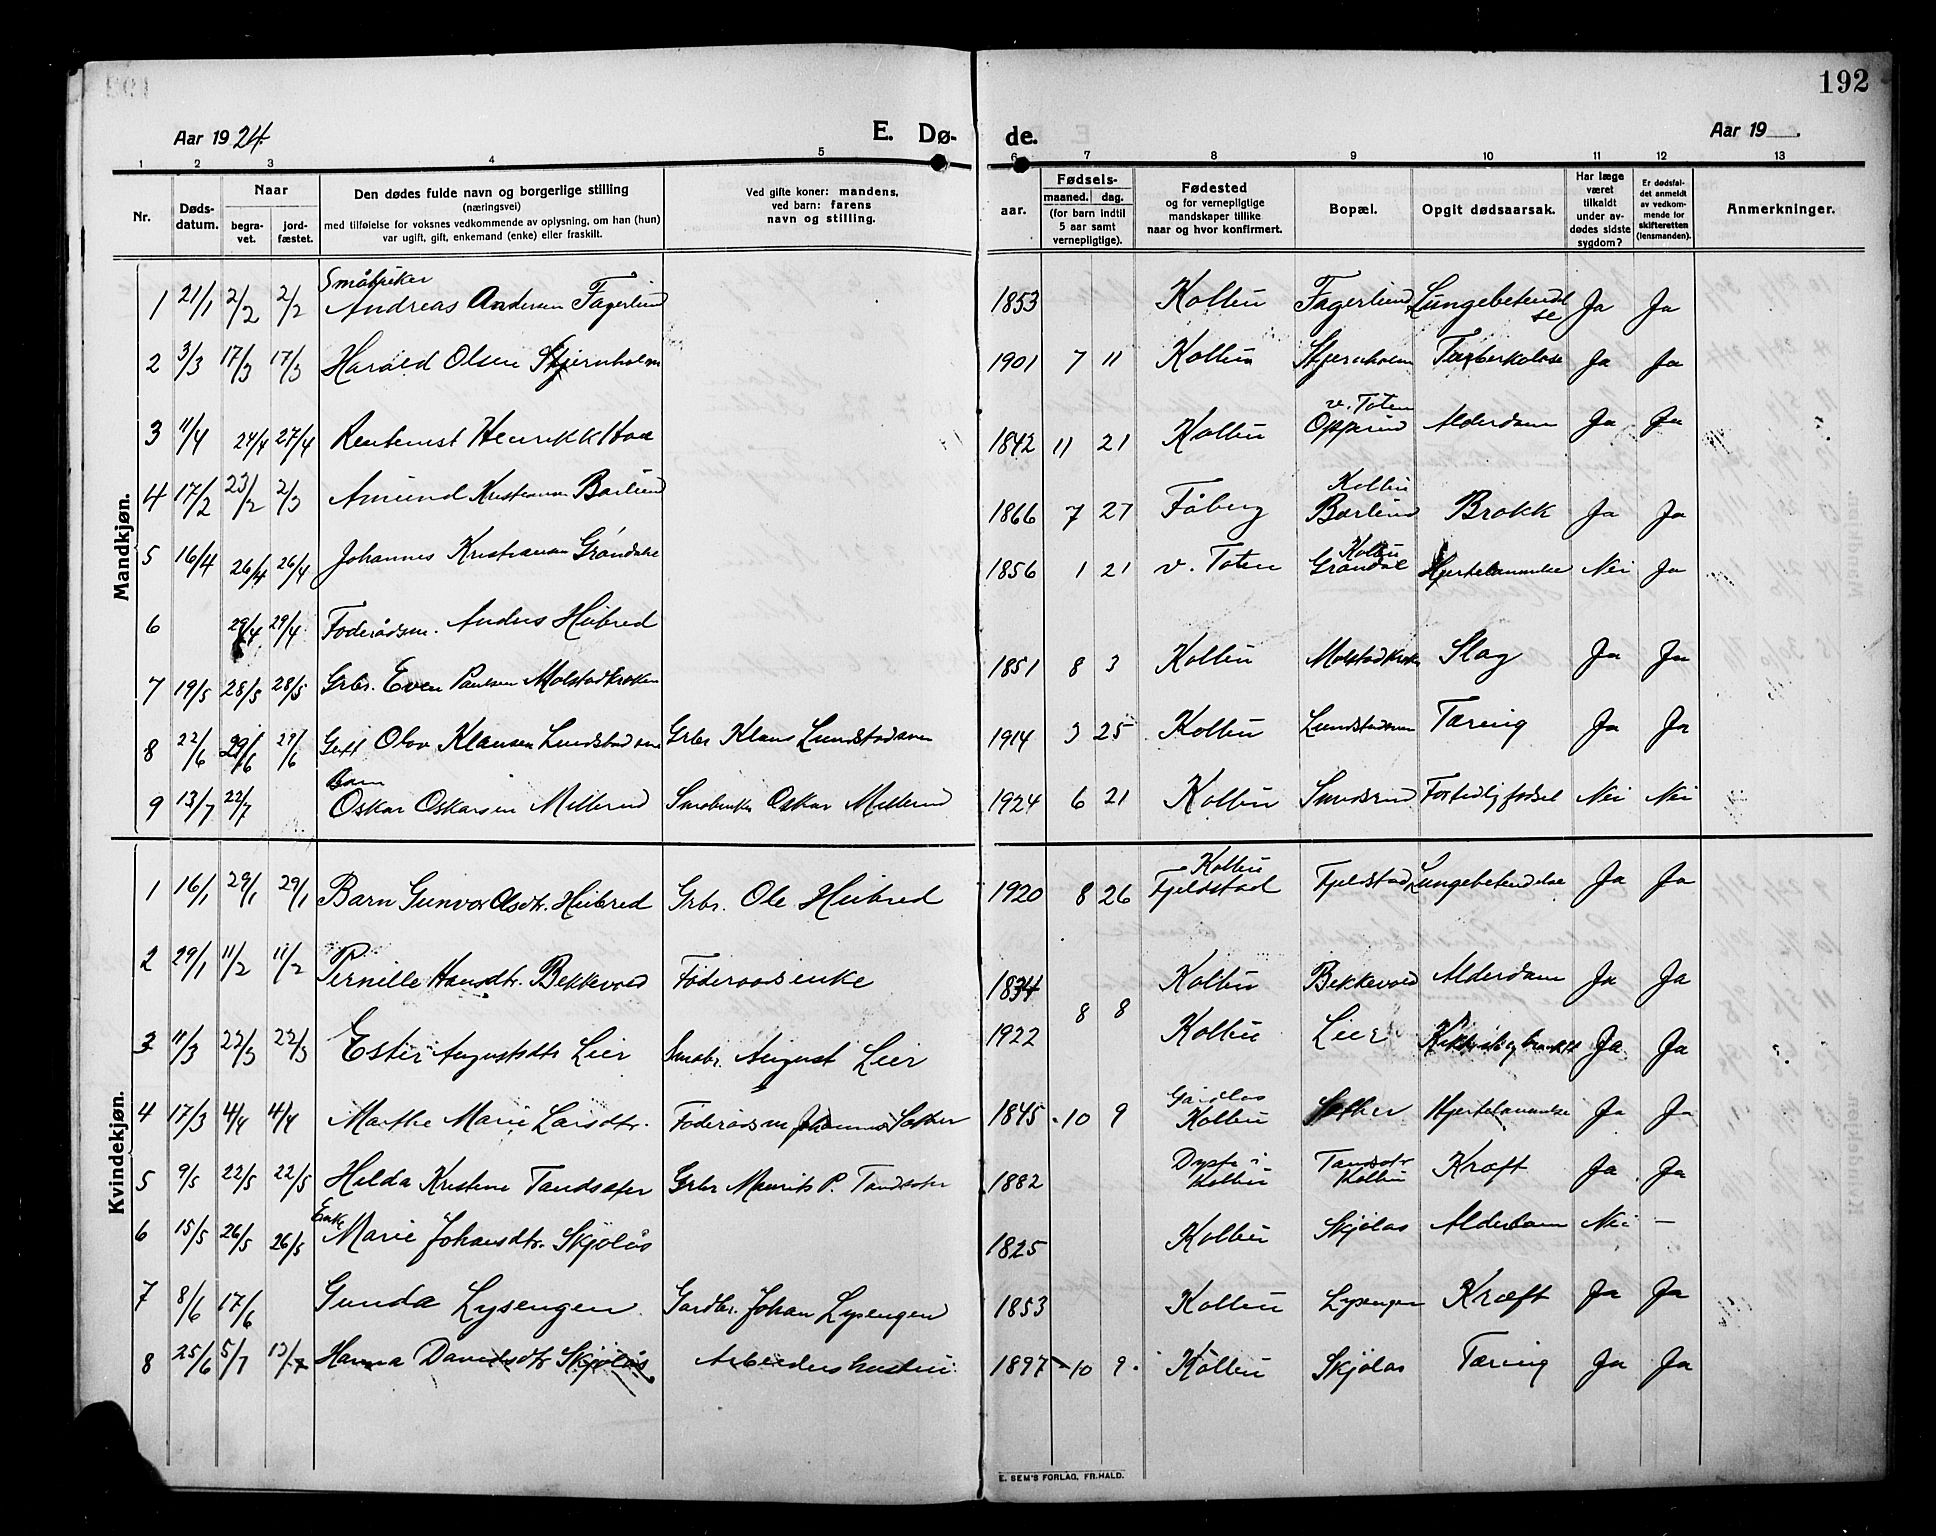 192
Aar 1924.
E. Dø-
de.
Aar 19
1 2 3 4 5 6 7 8 9 10 11 12 13
Nr.
Døds-datum.
Naar
begra-vet.
jord-fæstet.
Den dødes fulde navn og borgerlige stilling
(næringsvei)
med tilføielse for voksnes vedkommende av oplysning, om han (hun)
var ugift, gift, enkemand (enke) eller fraskilt.
Ved gifte koner: mandens,
ved barn: farens
navn og stilling.
Fødsels-
aar.
maaned.
dag.
(for barn indtil
5 aar samt
vernepligtige).
Fødested
og for vernepligtige
mandskaper tillike
naar og hvor konfirmert.
Bopæl.
Opgit dødsaarsak.
Har læge
været
tilkaldt
under av-
dødes sidste
sygdom?
Er dødsfal-
det anmeldt
av vedkom-
mende for
skifteretten
(lensmanden).
Anmerkninger.
Mandkjøn.
1 21/1 2/2 2/2 Småbruker Andreas Andersen Fagerlund 1853 Kolbu Fagerlund Lungebetendelse Ja Ja
2 3/3 17/3 17/3 Harald Olsen Stjernholm 1901 7 11 Kolbu Stjernholm Tuberkolose Ja Ja
3 11/4 24/4 27/4 Rentenist Henrikk Hoa 1842 11 21 Kolbu v. Toten Opperud Alderdom Ja Ja
4 17/2 23/2 2/3 Amund Kristiansen Barlund 1866 7 27 Fåberg Kolbu Barlund Brokk Ja Ja
5 16/4 26/4 26/4 Johannes Kristiansen Grøndale 1856 1 21 v. Toten Kolbu Grøndal Hjertelammelse Nei Ja
6 29/4 29/4 Føderådsm. Anders Hubred
7 19/5 28/5 28/5 Grbr. Even Paulsen Molstadkroken 1851 8 3 Kolbu Molstadkroken Slag Ja Ja
8 22/6 29/6 29/6 Gutt Olav Klausen Lundstadsveen Grbr Klaus Lundstadsveen 1914 3 25 Kolbu Lundstadsveen Tæring Ja Ja
9 13/7 22/7 Barn Oskar Oskarsen Millerud Småbruker Oskar Millerud 1924 6 21 Kolbu Fortidlig fødsel Nei Nei
Kvindekjøn.
1 16/1 29/1 29/1 Barn Gunvor Olsdtr. Hubred Grbr. Ole Hubred 1920 8 26 Kolbu Fjeldstad Fjeldstad Lungebetendelse Ja Ja
2 29/1 11/2 11/2 Pernille Hansdtr. Bekkevold Føderaadsenke 1834 Kolbu Bekkevold Alderdom Ja Ja
3 11/3 22/3 22/3 Ester Augustsdtr Lier Smabr. August Lier 1922 8 8 Kolbu Lier Ja Ja
4 17/3 4/4 4/4 Marthe Marie Larsdtr. Føderådsm Johannes Sæther 1845 10 9 Kolbu Sæther Hjertelammelse Ja Ja
5 9/5 22/5 22/5 Hilda Kristine Tandsæter Grbr Maurits P. Tandsæter 1882 Dyste i Kolbu Tandsætr Kolbu Kræft Ja Ja
6 15/5 26/5 26/5 Enke Marie Johansdtr. Skjølås 1825 Kolbu Skjølas Alderdom Nei –
7 8/6 17/6 Gunda Lysengen. Gardbr. Johan Lysengen 1853 Kolbu Lysengen Kræft Ja Ja
8 25/6 5/7 13/7 Hanna Davidsdtr Skjølås Arbeiders hustru. 1897 10 9. Kolbu Skjølas Tæring Ja Ja
E. SEM'S FORLAG, FR.HALD.